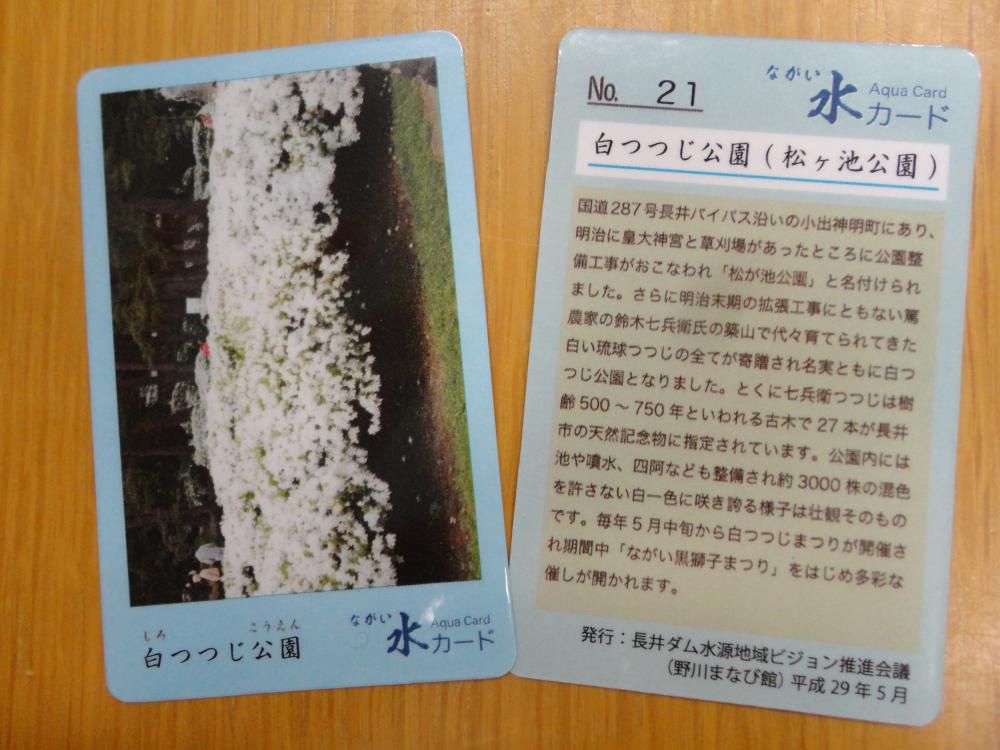 しろ こうえん
白つつじ公園
ながい
水 Aqua Card
カード
No. 21
ながい
水 Aqua Card
カード
白つつじ公園(松ヶ池公園)
国道287号長井バイパス沿いの小出神明町にあり、
明治に皇大神宮と草刈場があったところに公園整
備工事がおこなわれ「松が池公園」と名付けられ
ました。さらに明治末期の拡張工事にともない篤
農家の鈴木七兵衛氏の築山で代々育てられてきた
白い琉球つつじの全てが寄贈され名実ともに白つ
つじ公園となりました。とくに七兵衛つつじは樹
齢500〜750年といわれる古木で27本が長井
市の天然記念物に指定されています。公園内には
池や噴水、四阿なども整備され約3000株の混色
を許さない白一色に咲き誇る様子は壮観そのもの
です。毎年5月中旬から白つつじまつりが開催さ
れ期間中「ながい黒獅子まつり」をはじめ多彩な
催しが開かれます。
発行:長井ダム水源地域ビジョン推進会議
(野川まなび館)平成29年5月